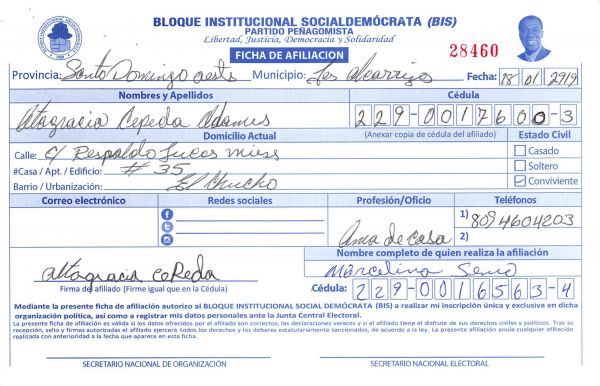 BLOQUE INSTITUCIONAL SOCIALDEMÓCRATA (BIS)
PARTIDO PEÑAGOMISTA
Libertad, Justicia, Democracia y Solidaridad
FICHA DE AFILIACION
28460
Provincia: Santo Domingo oeste Municipio: Los Alcarrizos Fecha: 18/01/2919
Nombres y Apellidos Cédula
Altagracia Cepeda Adames 229-0017600-3
Domicilio Actual (Anexar copia de cédula del afiliado) Estado Civil
Calle: C/ Respaldo Lucas
#Casa / Apt. / Edificio: # 35
Barrio / Urbanización: El Chucho
Casado
Soltero
Conviviente
Correo electrónico Redes sociales Profesión/Oficio Teléfonos
Ama de casa
1) 8094604203
2)
Nombre completo de quien realiza la afiliación
altagracia cepeda Marcelina
Firma de afiliado (Firme igual que en la Cédula)
Cédula: 229-0016563-4
Mediante la presente ficha de afiliación autorizo al BLOQUE INSTITUCIONAL SOCIAL DEMÓCRATA (BIS) a realizar mi inscripción única y exclusiva en dicha
organización política, así como a registrar mis datos personales ante la Junta Central Electoral.
La presente ficha de afiliación es válida si los datos ofrecidos por el afiliado son correctos, las declaraciones veraces y si el afiliado tiene el disfrute de sus derechos civiles y políticos. Tras su
inscripción, sello y firmas autorizadas el afiliado ejercerá todos los derechos y los deberes estatutariamente sancionados, de acuerdo a la ley. La presente afiliación anula cualquier afiliación
realizada con anterioridad a la fecha que aparece en esta ficha.
SECRETARIO NACIONAL DE ORGANIZACIÓN SECRETARIO NACIONAL ELECTORAL